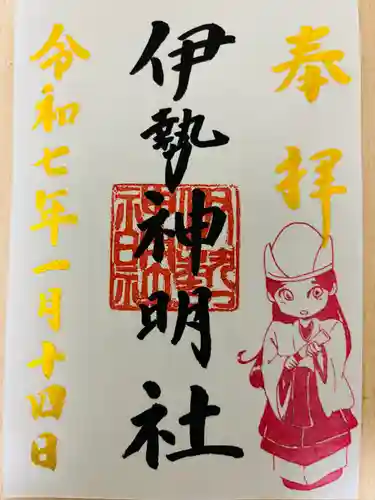 奉拝
伊勢神明社
令和七年一月十四日